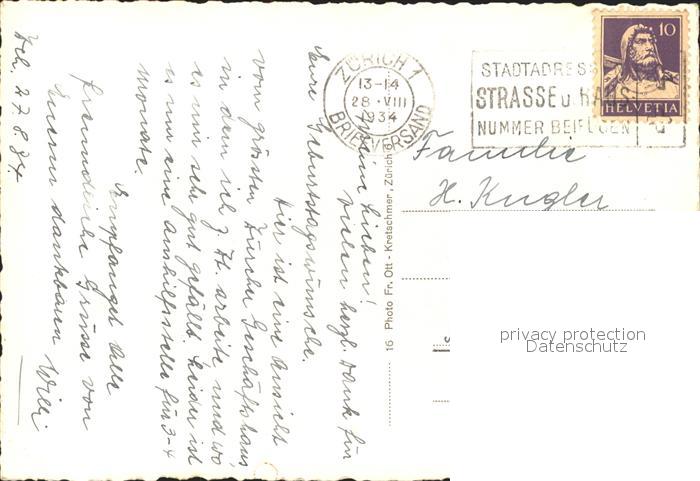 Meine Lieben!
Vielen herzl. Dank für
Eure Geburtstagswünsche.
Hier ist eine Ansicht
vom grössten Zürcher Geschäftshaus,
in dem ich z. Zt. arbeite und wo
es mir sehr gut gefällt. Leider ist
es nur eine Aushilfsstelle für 3-4
Monate.
Empfanget alle
freundliche Grüsse von
Eurem dankbaren Willi
Zch. 27.8.34
16 Photo Fr. Ott - Kretschmer, Zürich 6
ZÜRICH 1
13-14
28.VIII
1934
BRIEFVERSAND
STADTADRESS
STRASSE U. HAUS-
NUMMER BEIFÜGEN
10
HELVETIA
Familie
H. Kugler
privacy protection
Datenschutz